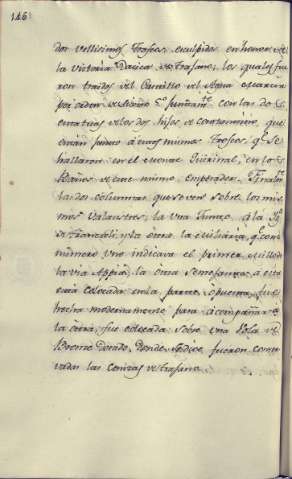 146
dos vellisimos Trofeos, esculpidos en honor de
la victoria Dacica de Trajano; los quales fue
ron traidos del Castillo del Agua
por orden de Sixto 5.º juntam.te con las dos
estatuas de los dos hijos de Constantino, que
estavan junto à estos mismos Trofeos, q.e se
hallaron en el monte Quirinal, en los
Baños de este mismo emperador. Finalm.te
las dos columnas que se ven sobre los mis
mos valaustres; la una junto à la Yg.a
de Franceli; y la otra, la miliaria, q.e con
numero uno indicava el primer milla de
la via Appia; la otra semejante a esta
està colocada en la parte opuesta, fue
hecha modernamente para acompañar à
la otra, fue colocada sobre una Bola de
Bronce Dorado, donde se dice, fueron conser
vadas las cenizas de Trajano.